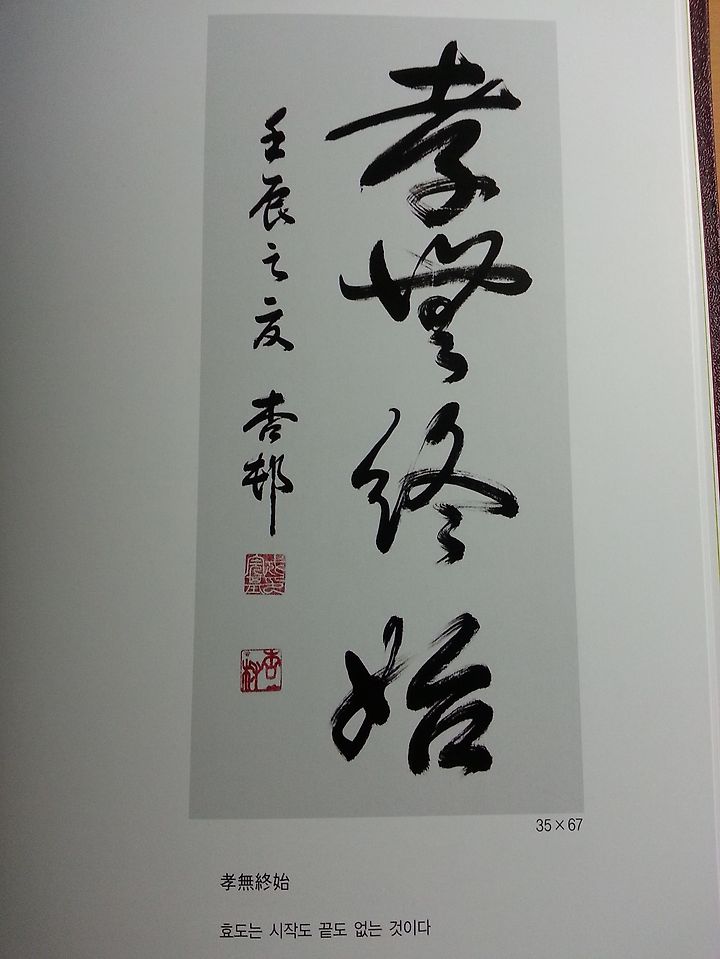 孝無終始
壬辰之夏 杏邨
杏村
35×67
孝無終始
효도는 시작도 끝도 없는 것이다